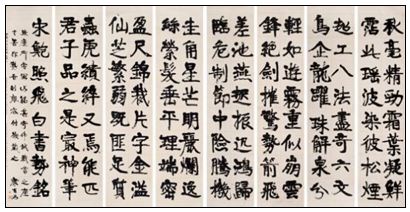 秋毫精勁霜葉凝鮮
霑此瑤波染彼松煙
超工八法盡奇六文
鳥企龍躍珠解泉分
輕如遊霧重似崩雲
鋒絕劍摧驚勢箭飛
差池燕起振迅鴻歸
臨危制節中險騰機
圭角星芒明麗爛逸
絲縈髮垂平理端密
盈尺錦裁片字金溢
仙芝繁弱既匪足
蟲虎又焉能匹
君子品之是最神筆
宋鮑照飛白書勢銘